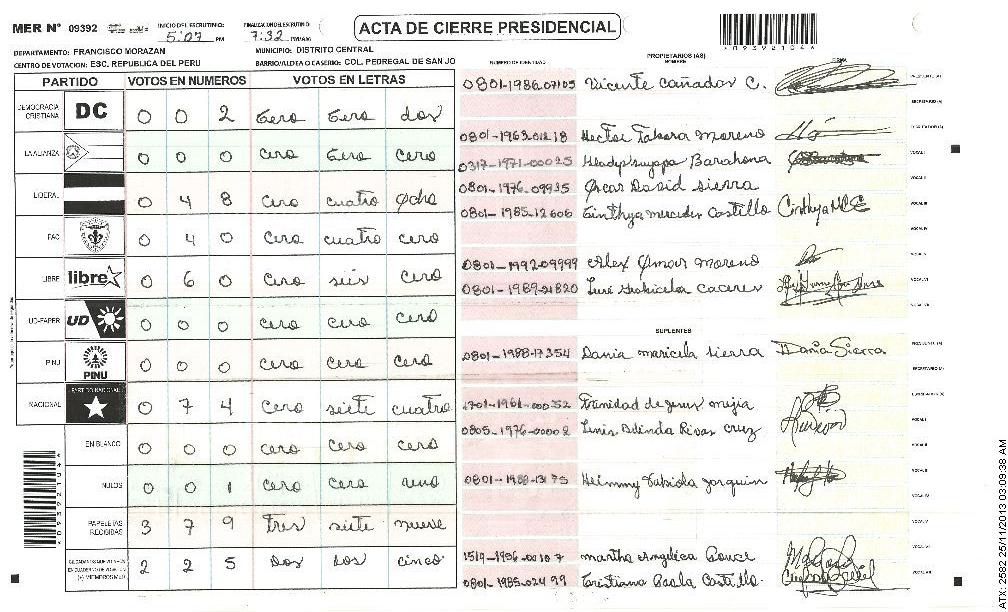 MER Nº 09392
INICIO DEL ESCRUTINIO:
5:07 PM
FINALIZACION DEL ESCRUTINIO
7:32 PM/AM
ACTA DE CIERRE PRESIDENCIAL
DEPARTAMENTO: FRANCISCO MORAZAN
MUNICIPIO: DISTRITO CENTRAL
CENTRO DE VOTACION: ESC. REPUBLICA DEL PERU
BARRIO/ALDEA O CASERIO: COL. PEDREGAL DE SAN JO
PARTIDO VOTOS EN NUMEROS VOTOS EN LETRAS
DEMOCRACIA CRISTIANA DC 0 0 2 Cero Cero dos
LA ALIANZA 0 0 0 cero Cero cero
LIBERAL 0 4 8 cero cuatro Ocho
FAC 0 4 0 cero cuatro cero
LIBRE libre 0 6 0 cero seis cero
UD-FAPER UD 0 0 0 cero cero cero
PINU PINU 0 0 0 cero cero cero
NACIONAL PARTIDO NACIONAL 0 7 4 cero siete cuatro
EN BLANCO 0 0 0 cero cero cero
NULOS 0 0 1 cero cero uno
PAPELETAS RECIBIDAS 3 7 9 tres siete nueve
CIUDADANOS QUE VOTARON EN CUADERNO DE VOTACION (+) MIEMBROS MER 2 2 5 Dos Dos cinco
NUMERO DE IDENTIDAD
PROPIETARIOS (AS)
NOMBRE
FIRMA
0801-1986-07105 Vicente Cañadas C.
0801-1963-01218 Hector Tabora Moreno
0317-1971-00025 Gladys Suyapa Barahona
0801-1976-09935 Oscar David Sierra
0801-1985-12606 Cinthya Mercedes Castillo
0801-1992-09999 Alex Omar Moreno
Caceres
SUPLENTES
0801-1988-17354 Dania maricela Sierra Dania Sierra
1701-1961-00052 Trinidad de Jesus mejia
0805-1976-00002 Rivas Cruz
0801-1988-13175 Fabiola Joaquin
martha Angelica Ponce
Cristiana Paola Castillo
ATX: 2582 25/11/2013 03:09:38 AM